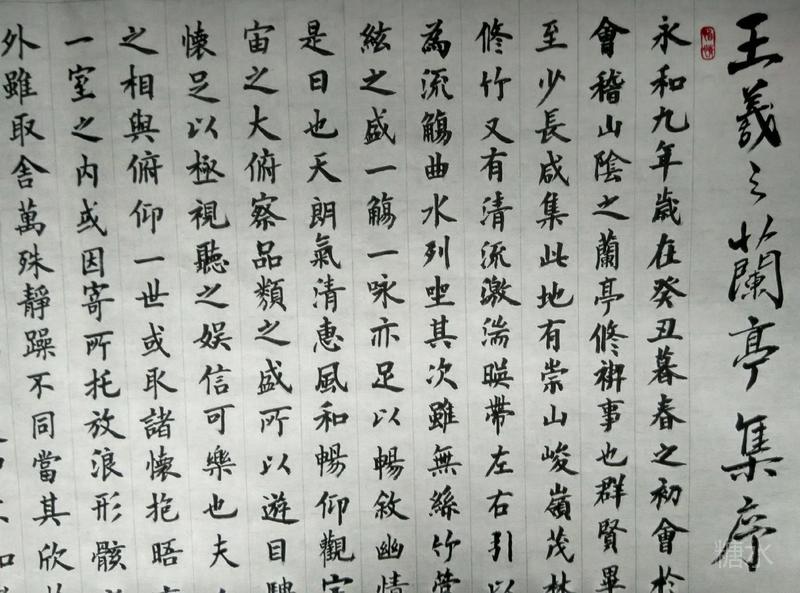 王羲之蘭亭集序
永和九年歲在癸丑暮春之初會於
會稽山陰之蘭亭修禊事也群賢畢
至少長咸集此地有崇山峻嶺茂林
修竹又有清流激湍暎帶左右引以
為流觴曲水列坐其次雖無絲竹管
絃之盛一觴一咏亦足以暢敘幽情
是日也天朗氣清惠風和暢仰觀宇
宙之大俯察品類之盛所以遊目騁
懷足以極視聽之娱信可樂也夫
之相與俯仰一世或取諸懷抱晤
一室之内或因寄所托放浪形骸
外雖取舍萬殊靜躁不同當其欣
糖水